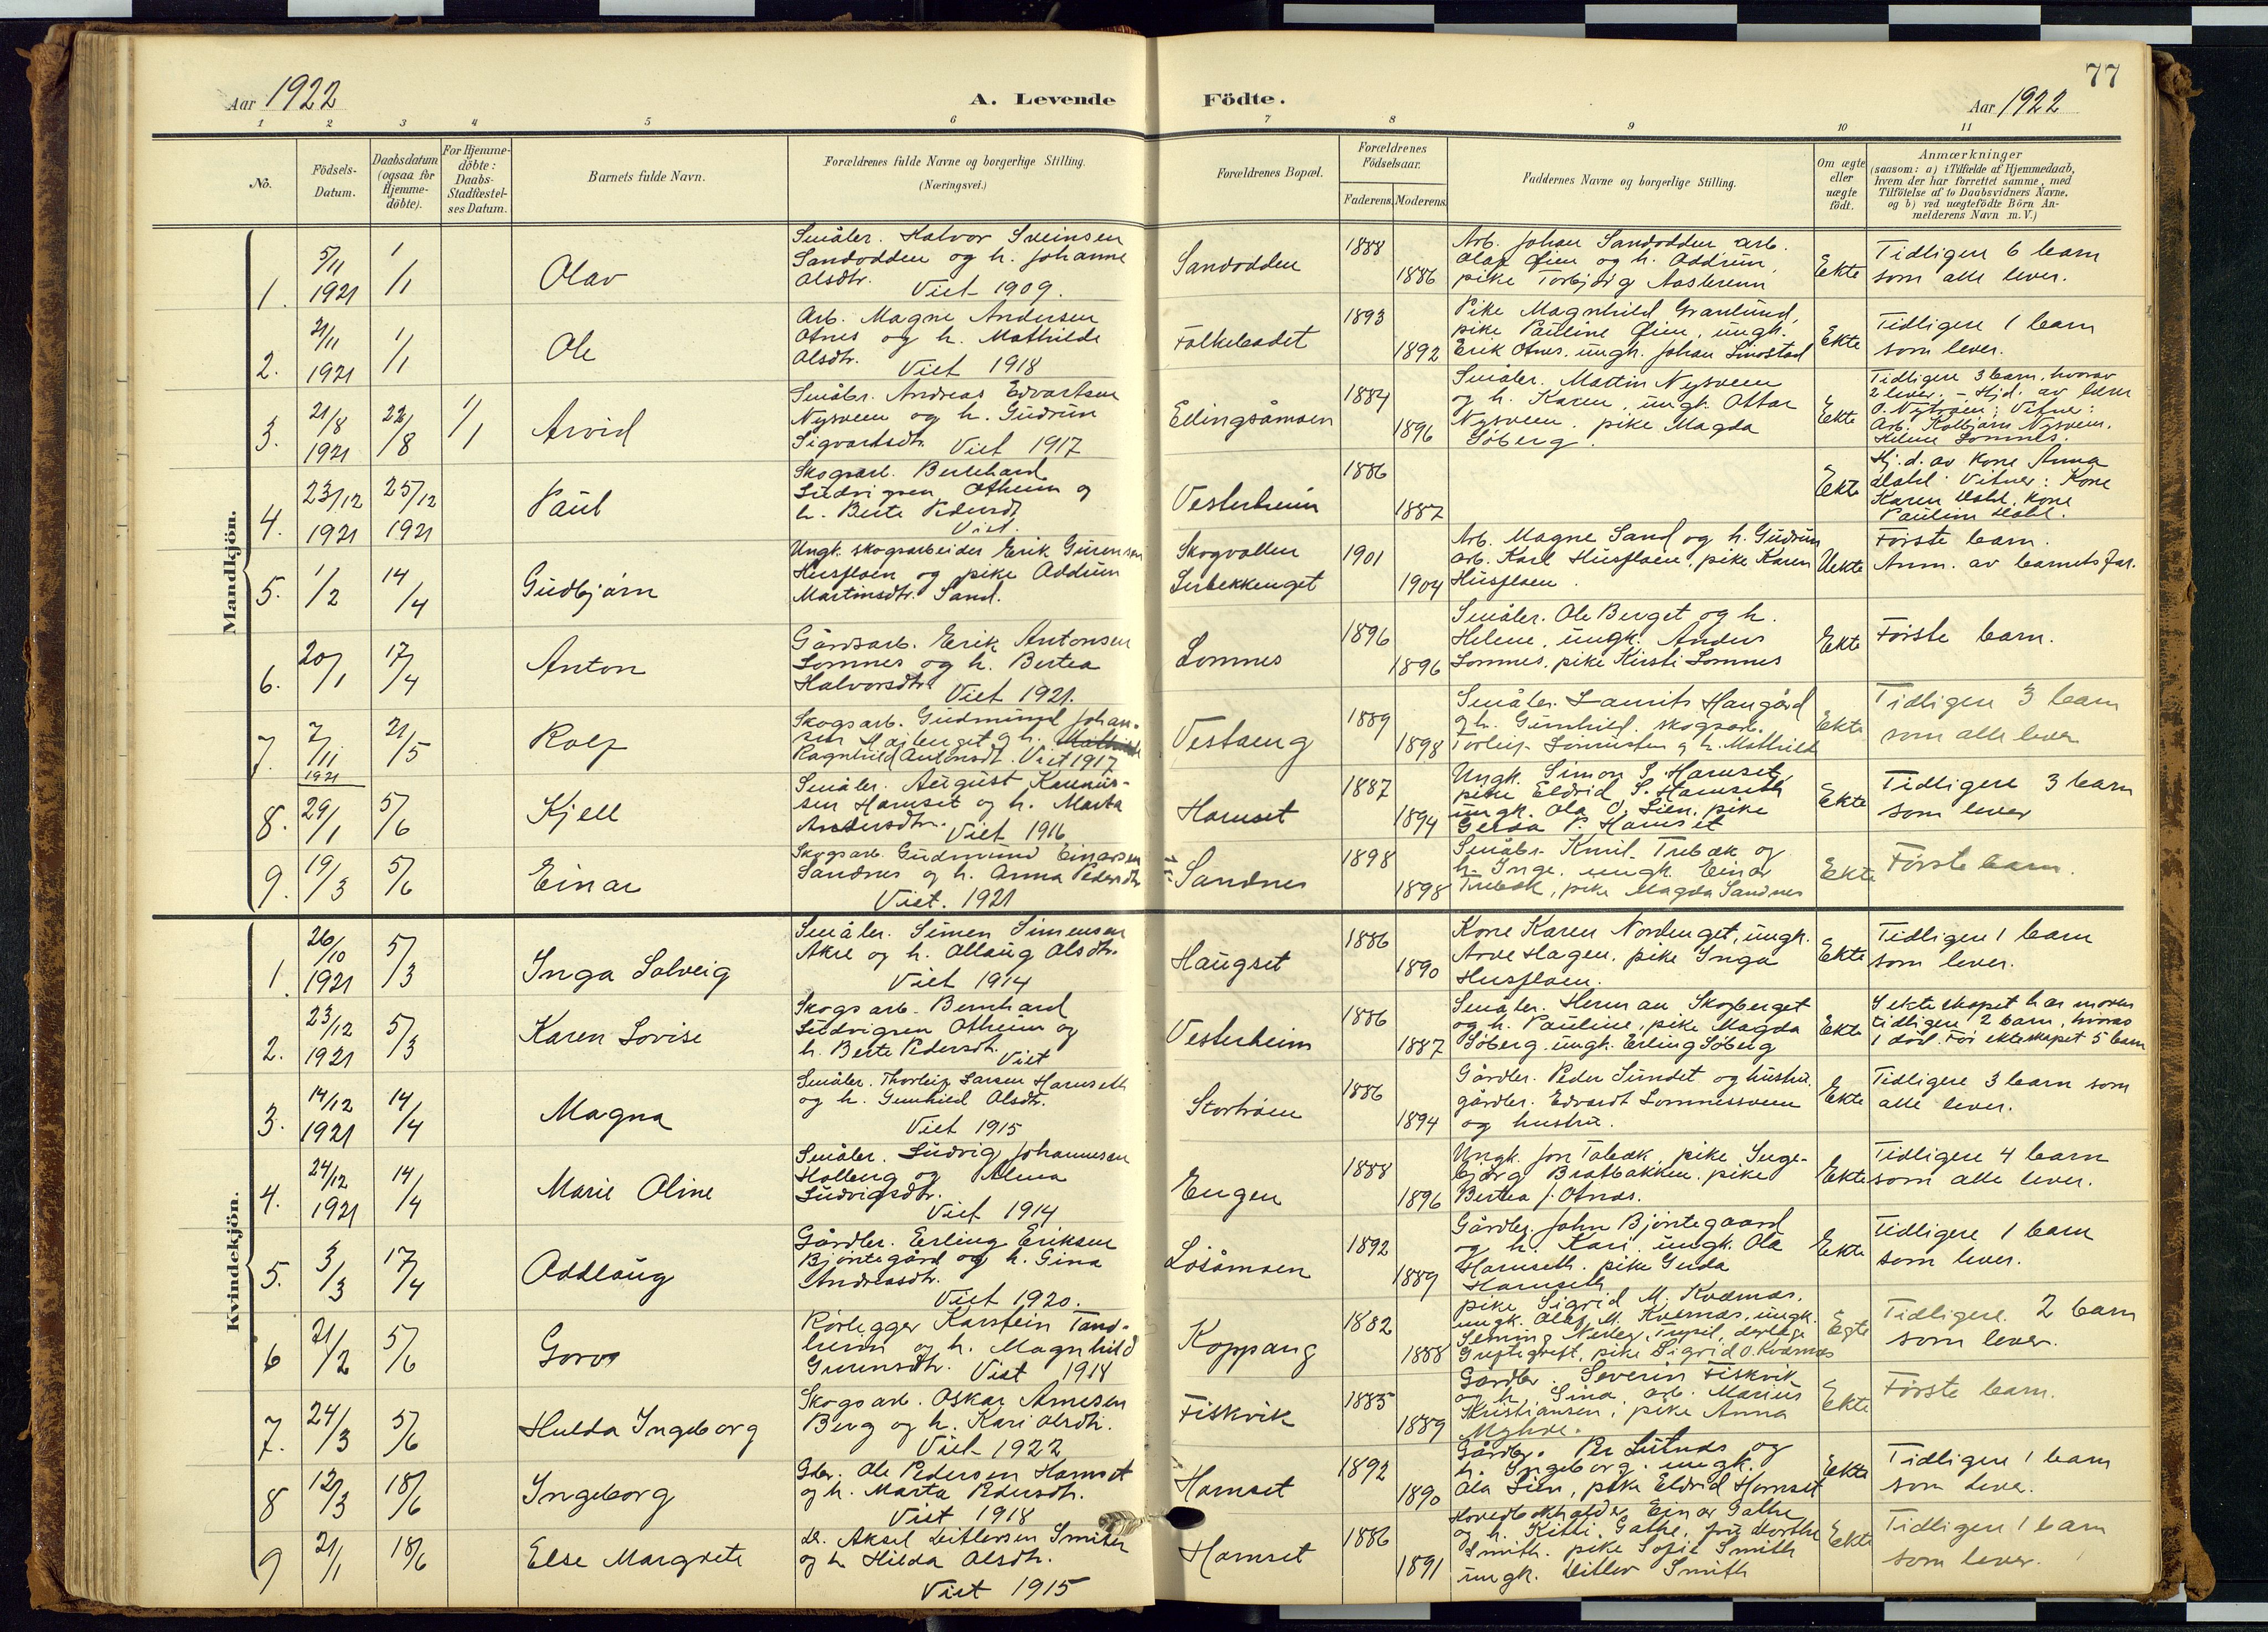 77
Aar 1922
A. Levende Födte.
Aar 1922
1 2 3 4 5 6 7 8 9 10 11
No.
Födsels-
Datum.
Daabsdatum
(ogsaa for
Hjemme-
döbte).
For Hjemme-
döbte:
Daabs-
Stadfæstel-
ses Datum.
Barnets fulde Navn.
Forældrenes fulde Navne og borgerlige Stilling.
(Næringsvei.)
Forældrenes Bopæl.
Forældrenes
Födselsaar.
Faderens. Moderens.
Faddernes Navne og borgerlige Stilling.
Om ægte
eller
uægte
födt.
Anmærkninger
(saasom: a) i Tilfælde af Hjemmedaab,
hvem der har forrettet samme, med
Tilföielse af to Daabsvidners Navne.
og b) ved uægtefödte Börn An-
melderens Navn m.V.)
Mandkjön.
1. 5/11 1921 1/1 Olav
Småbr. Halvor Sveinsen
Sandodden og h. Johanne
Olsdtr. Viet 1909.
Sandodden 1888 1886
Arb. Johan Sandodden arb.
Olaf Øien og h. Oddrun,
pike Torbjørg Aasheseenn
Ekte
Tidligere 6 barn
som alle lever.
2. 21/11 1921 1/1 Ole
Arb. Magne Andersen
Otnes og h. Mathilde
Olsdtr. Viet 1918
Folkebadet 1893 1892
Pike Magnhild Granlund,
pike Pauline Øien, ungk.
Erik Otnes. ungk. Johan Smostad
Ekte
Tidligere 1 barn
som lever.
3. 21/8 1921 22/8 1/1 Arvid
Småbr. Andreas Edvartsen
Nysveen og h. Gudrun
Sigvartsdtr. Viet 1917
Edingsåmoen 1884 1896
Småbr. Martin Nysveen
og h. Karen, ungk. Ottar
Nysveen. pike Magda
Søberg.
Ekte
Tidligere 3 barn, hvorav
2 lever. - Hjd. av lærer
O. Nytrøen; Vitner:
Arb. Kolbjørn Nysveen.
Helene Lomnes.
4. 23/12 1921 25/12 1921 Paul
Skogsarb. Bernhard
Ludvigsen Otheim og
h. Berte Pedersdt.
Viet.
Vesterheim 1886 1887
Ekte
Hj.d. av kone Anna
Dahl. Vitner: Kone
Karen Dahl, kone
Pauline Dahl.
5. 1/2 14/4 Gudbjørn
Ungk. skogsarbeider Erik Gurensen
Husfloen og pike Oddrun
Martinsdtr. Sand.
Skogvollen
Lerbekkenget 1901 1904
Arb. Magne Sand og h. Gudrun
arb. Karl Husfloen, pike Karen
Husfloen.
Uekte
Første barn.
Anm. av barnets far.
6. 20/1 17/4 Anton
Gårdsarb. Erik Antonsen
Lomnes og h. Bertea
Halvorsdtr. Viet 1921.
Lomnes 1896 1896
Småbr. Ole Berget og h.
Helene, ungk. Anders
Lomnes, pike Kirsti Lomnes
Ekte
Første barn.
7. 7/11 1921 21/5 Rolf
Skogsarb. Gudmund Johan-
sen Høiberget og h.
Ragnhild Antonsdt. Viet 1917
Vestaeng 1889 1898
Småbr. Laurits Haugård
og h. Gunhild, skogsarb.
Torleif Lomusten og h. Mathilde
Ekte
Tidligere 3 barn
som alle lever
8. 29/1 5/6 Kjell
Småbr. August Rasmus-
sen Harnset og h. Marta
Andersdtr. Viet 1916
Harnset 1887 1894
Ungk. Simon S. Harnset,
pike Eldrid S. Harnseth
ungk. Ola O. Lien, pike
Gerda P. Harnset
Ekte
Tidligere 3 barn
som lever
9. 19/3 5/6 Einar
Skogsarb. Gudmund Einarsen
Sandnes og h. Anna Pedersdtr.
Viet. 1921
Sandnes 1898 1898
Småbr. Emil Trebæk og
h. Inge, ungk. Einar
Trebæk, pike Magda Sandnes
Ekte
Første barn.
Kvindekjön.
1. 26/10 1921 5/3 Inga Solveig
Småbr. Simen Simensen
Akre og h. Ollaug Olsdtr.
Viet 1914
Haugset 1886 1890
Kone Karen Nordenget, ungk.
Arve Hagen, pike Inga
Husfloen.
Ekte
Tidligere 1 barn
som lever.
2. 23/12 1921 5/3 Karen Lovise
Skogsarb. Bernhard
Ludvigsen Otheim og
h. Berte Pedersdt. Viet
Vesterheim 1886 1887
Småbr. Herman Skogberget
og h. Pauline, pike Magda
Søberg. ungk. Erling Søberg
Ekte
I ekteskapet har moren
tidligere 2 barn, hvorav
1 død. Før ekteskapet 5 barn
3. 14/12 1921 14/4 Magna
Småbr. Thorleif Larsen Harnseth
og h. Gunhild Olsdtr.
Viet 1915
Stortrøen 1886 1894
Gårdbr. Peder Sundet og hustru.
gårdbr. Edvardt Lomnessveen
og hustru.
Ekte
Tidligere 3 barn som
alle lever.
4. 24/12 1921 14/4 Marie Oline
Småbr. Ludvig Johannesen
Holberg og Alma
Ludvigsdtr.
Viet 1914
Engen 1888 1896
Ungk. Jon Tobæk, pike Inge-
bjørg Bratbakken, pike
Bertea J. Otnes.
Ekte
Tidligere 4 barn
som alle lever.
5. 3/3 17/4 Oddlaug
Gårdbr. Erling Eriksen
Bjøntegård og h. Gina
Andreasdtr.
Viet 1920.
Løsåmoen 1892 1889
Gårdbr. John Bjøntegaard
og h. Kari. ungk. Ola
Harnseth, pike Gerda
Harnseth
Ekte
Tidligere 1 barn
som lever.
6 21/2 5/6 Goro
Rørlegger Karstein Tand-
heim og h. Magnhild
Gurensdtr. Viet 1918
Koppang 1882 1888
pike Sigrid M. Kværnæs.
ungk. Olaf M. Kværnæs, ungk.
Trysil,
pike Sigrid O. Kværnæs
Egte
Tidligere 2 barn
som lever.
7. 24/3 5/6 Hulda Ingeborg
Skogsarb. Oskar Arnesen
Berg og h. Kari Olsdtr.
Viet 1922
Fiskvik 1885 1889
Gårdbr. Severin Fiskvik
og h. Sina, arb. Marius
Kristiansen, pike Anna
Myhre.
Ekte
Første barn.
8 12/3 18/6 Ingeborg
Gbr. Ole Pedersen Harnset
og h. Marta Pedersdtr.
Viet 1918
Harnset 1892 1890
Gårdbr. Per Lutnæs og
h. Ingeborg. ungk.
Ola Lien, pike Eldrid Harnset
Ekte
Tidligere 1 barn
som lever.
9 21/1 18/6 Else Margrete
Dr. Aksel Ditlevsen Smith
og h Hilda Olsdtr.
Viet 1915
Harnset 1886 1891
Hovedbokholder Einar Gathe
og h. Kitti Gathe, fru Dorthe
Smith. pike Sofie Smith
ungk. Ditlev Smith
Ekte
Tidligere 1 barn
som lever.